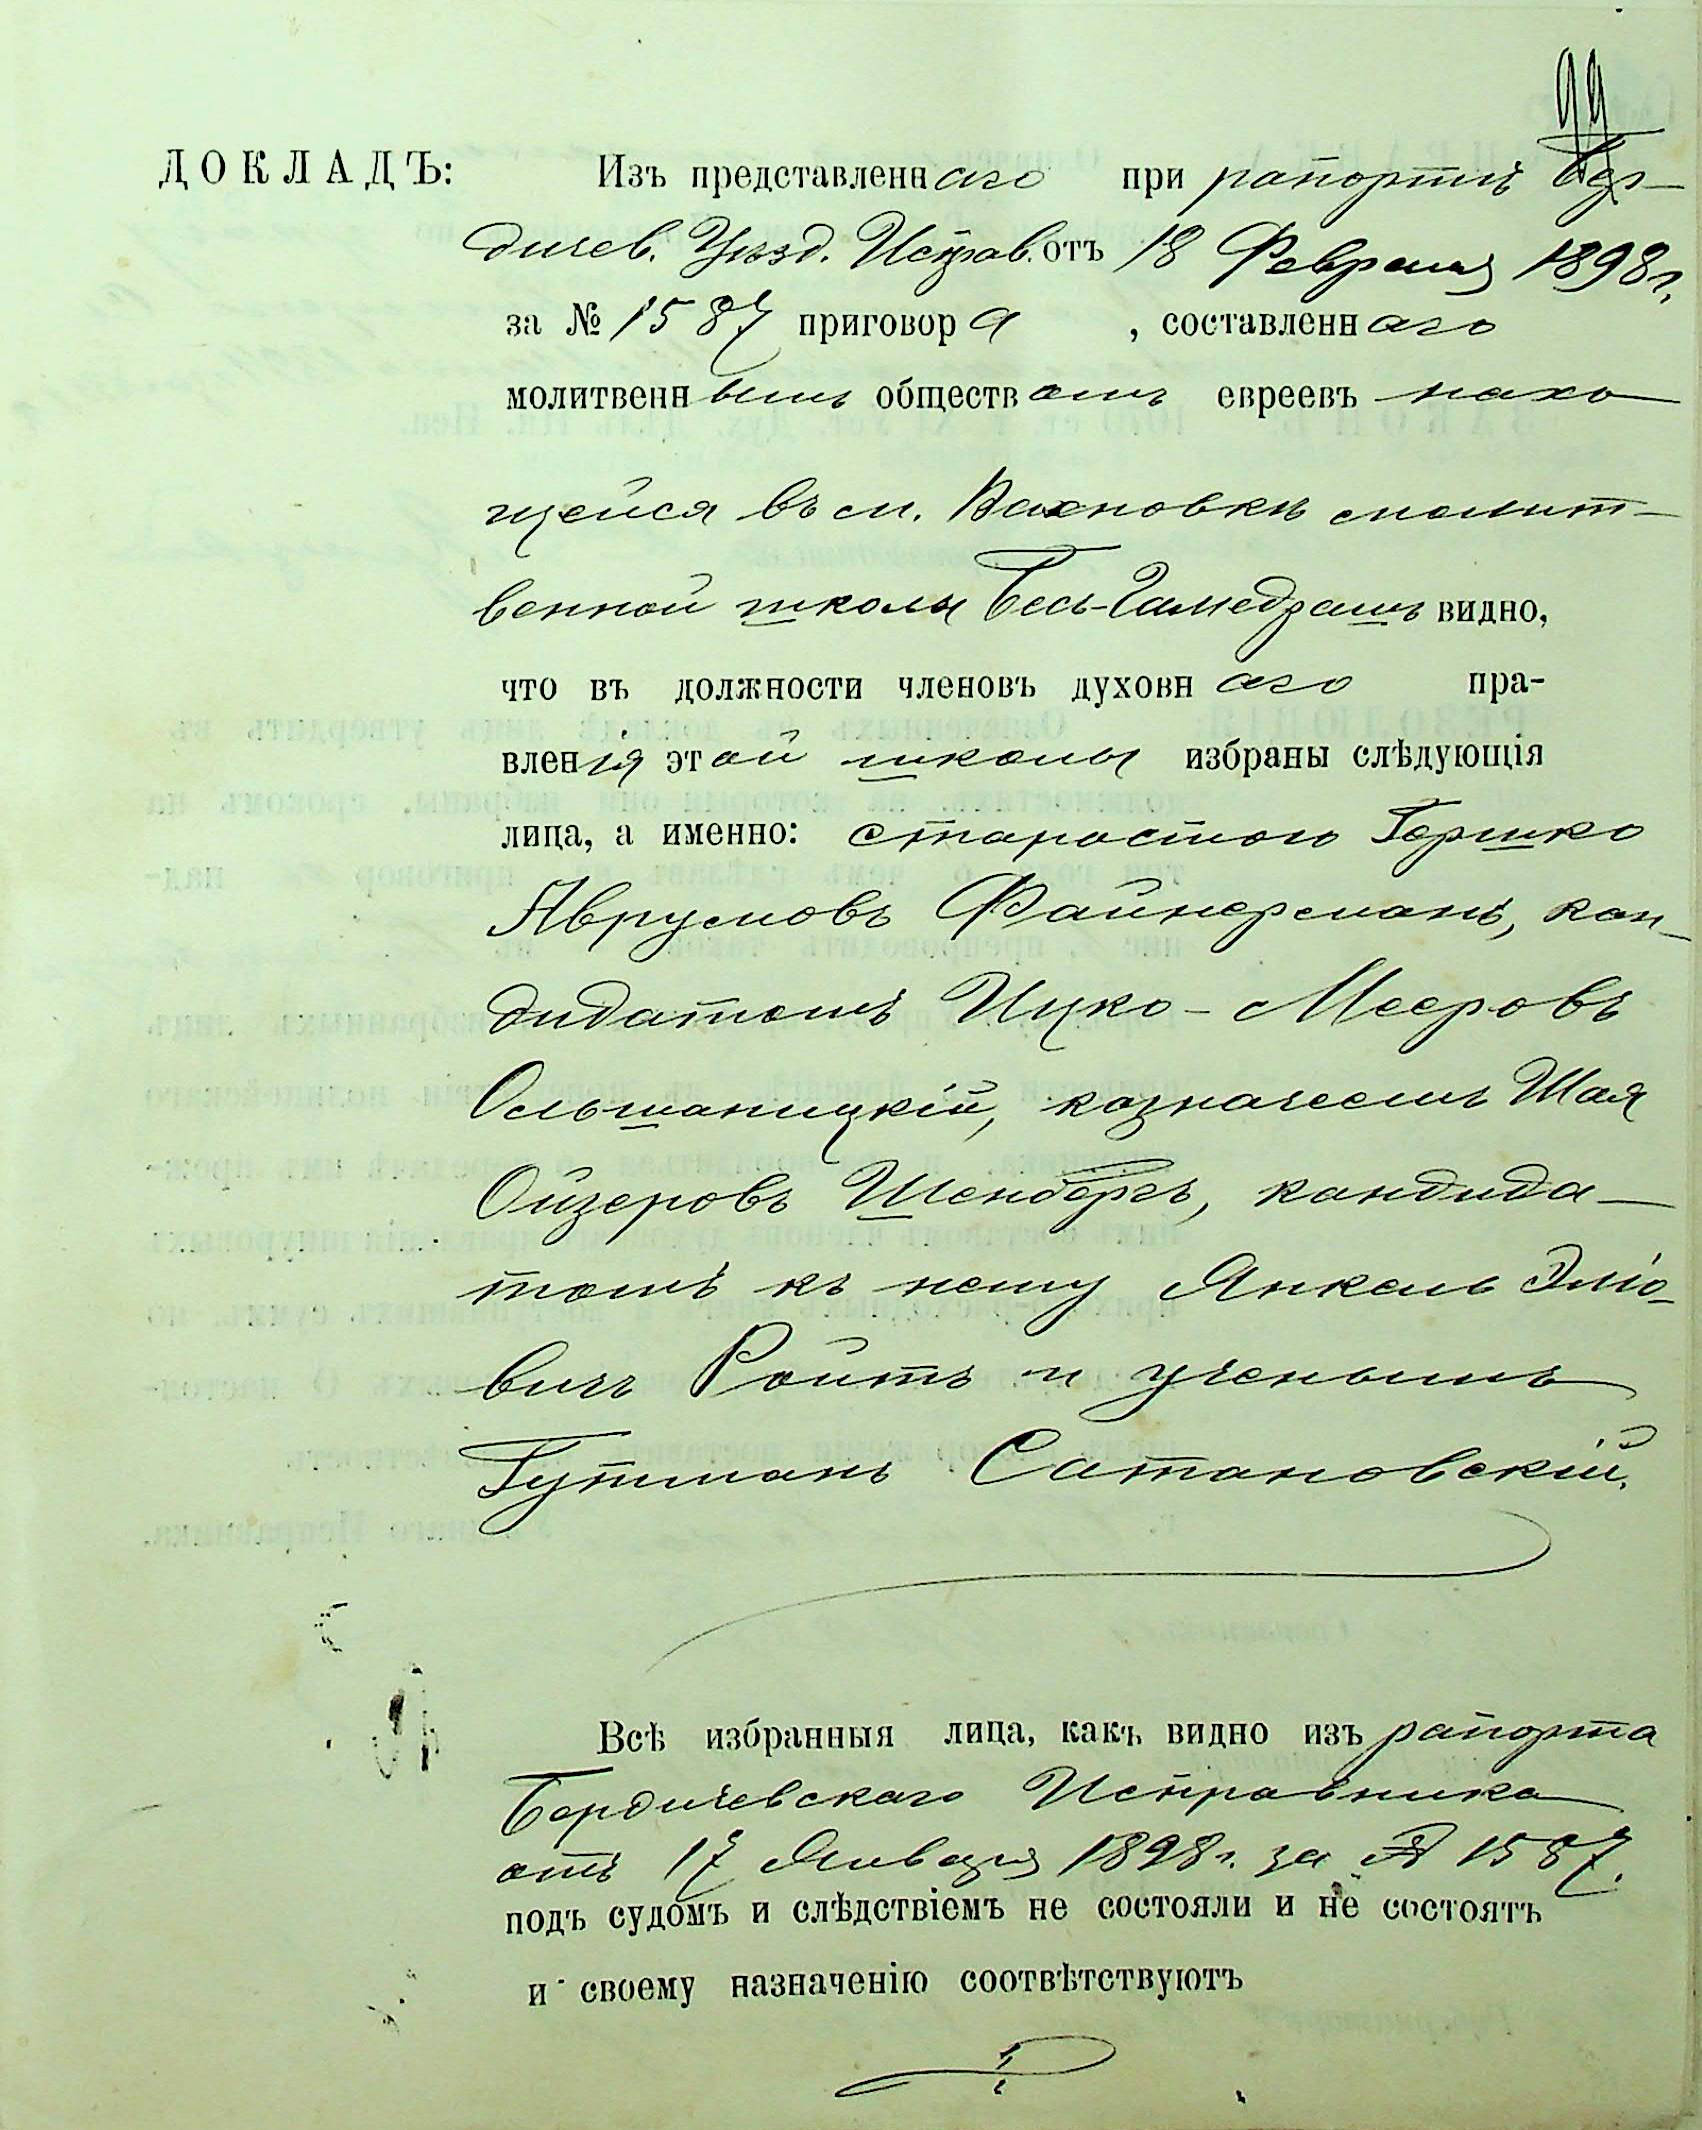 99
ДОКЛАДЪ: Изъ представленнаго при рапортѣ Бер-
дичев. Уѣзд. Исправ. отъ 18 Февраля 1898 г.
за № 1587 приговора, составленнаго
молитвеннымъ обществомъ евреевъ нахо
щейся въ м. Вахновкѣ молит-
венной школы Бесъ-Гамедрашъ видно,
что въ должности членовъ духовнаго пра-
вленія этой школы избраны слѣдующія
лица, а именно: старостою Гершко
Аврумовъ Файнерманъ, кан-
дидатомъ Ицко-Мееровъ
Ольшаницкій, казначеемъ Шая
Ойзеровъ Шенбергъ, кандида-
томъ къ нему Янкель Эліо-
вичъ Ройтъ и ученымъ
Гутманъ Сатановскій.
Всѣ избранныя лица, какъ видно изъ рапорта
Бердичевскаго Исправника
отъ 17 Января 1898 г. за № 1587.
подъ судомъ и слѣдствіемъ не состояли и не состоятъ
и своему назначенію соотвѣтствуютъ